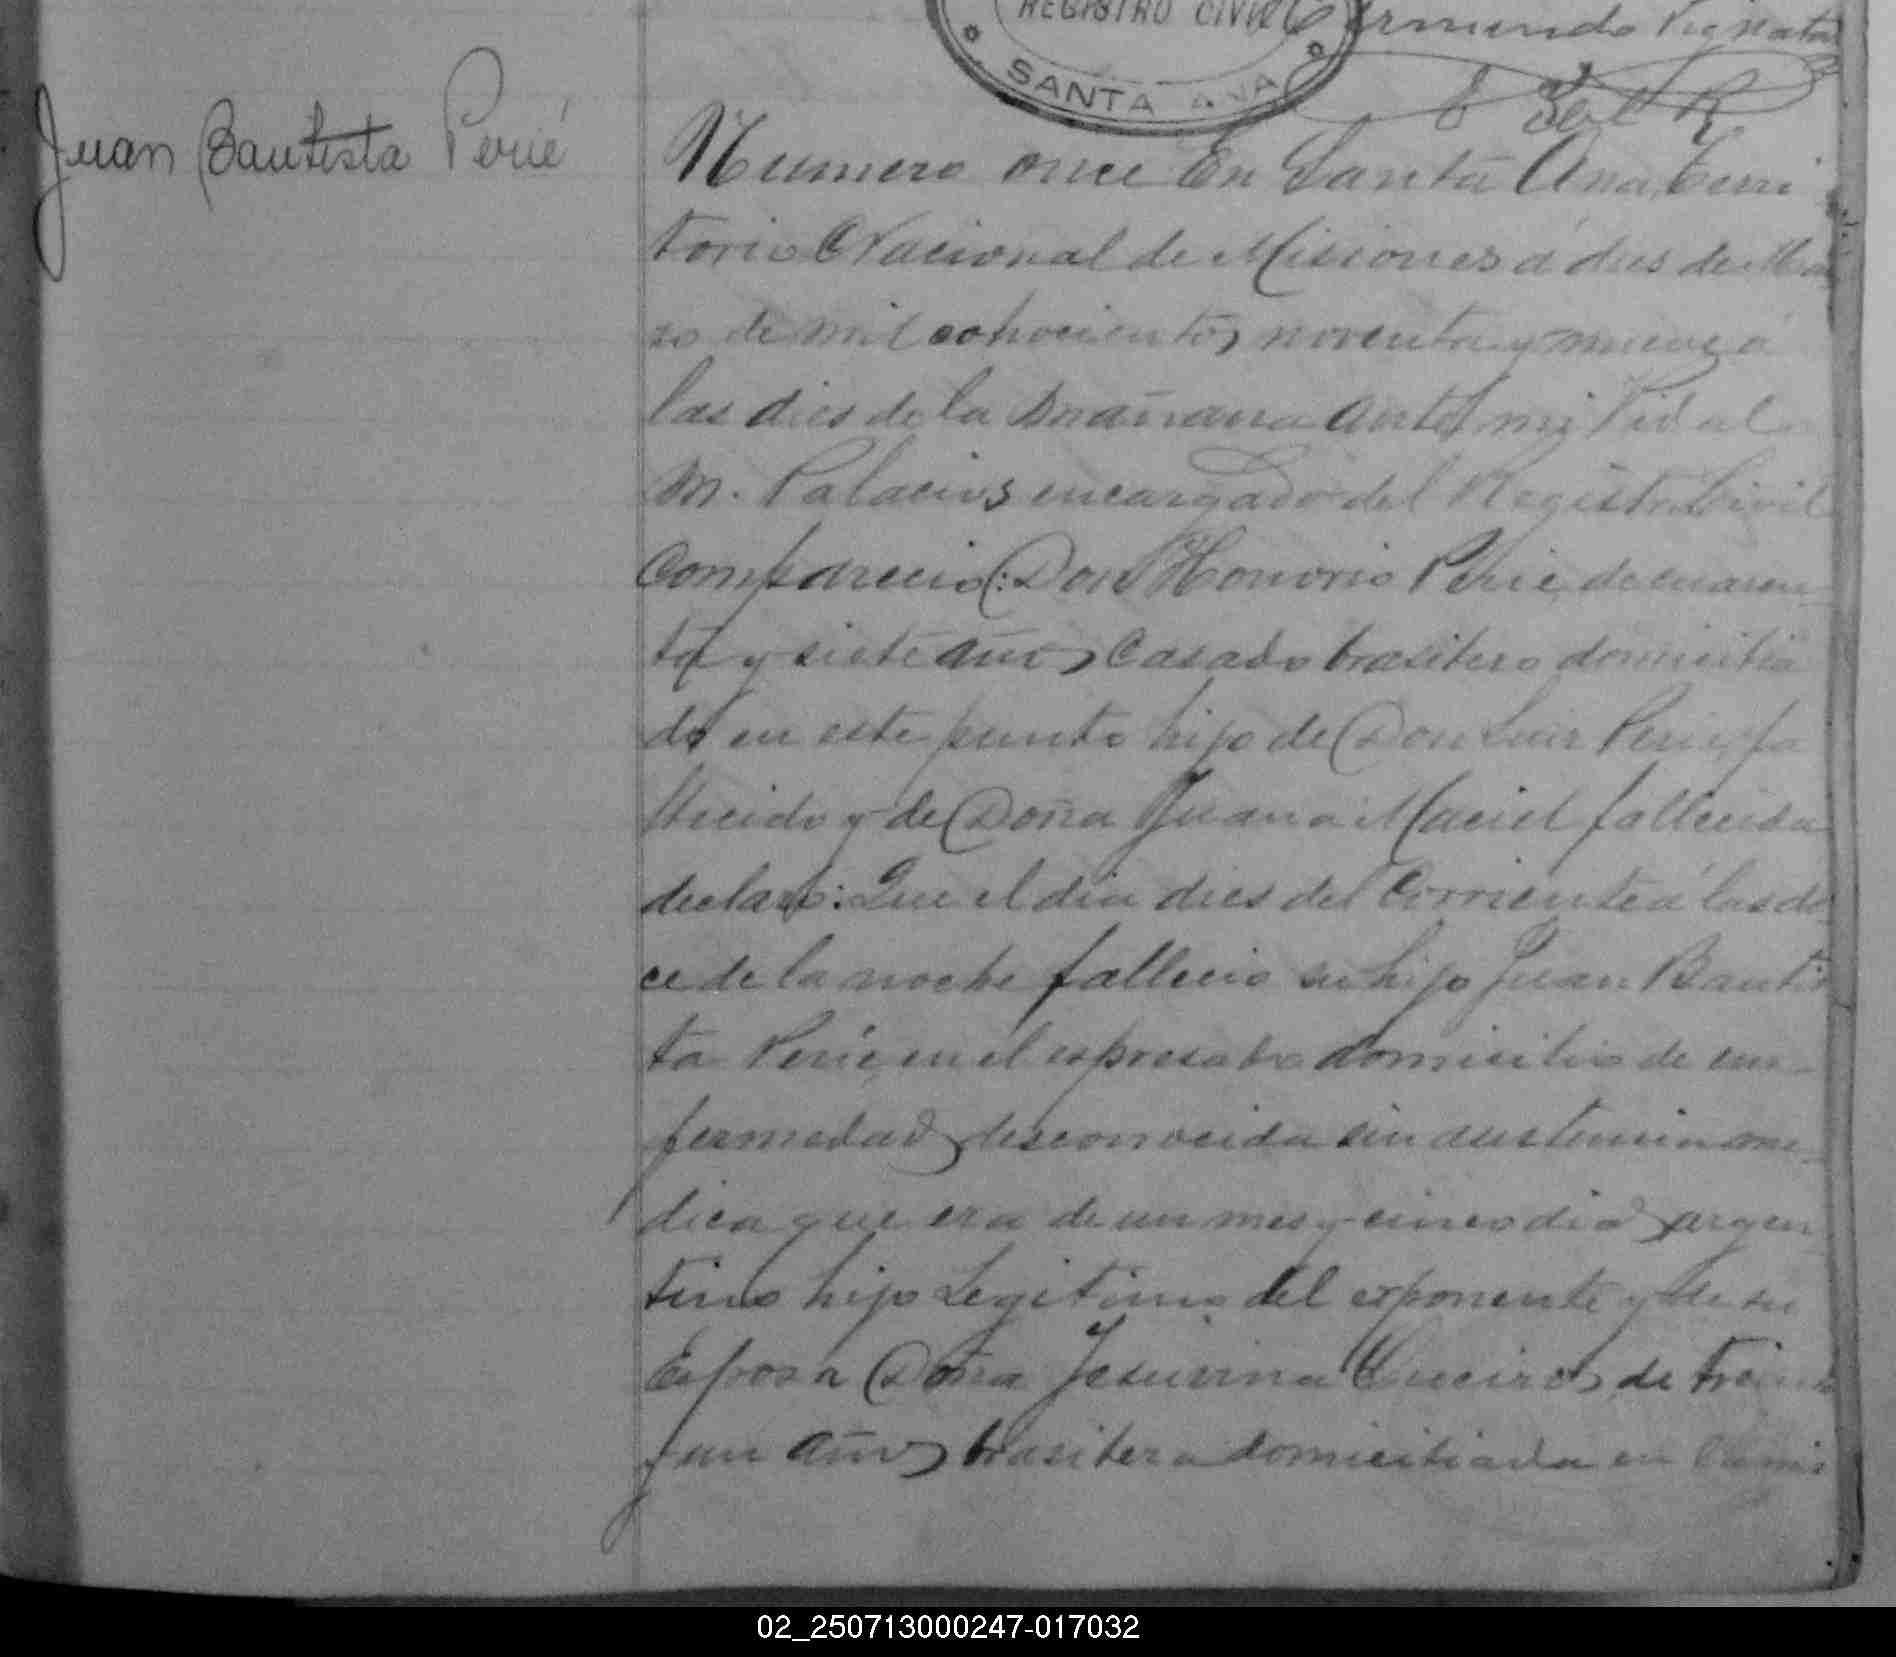 REGISTRO CIVIL
SANTA ANA
Juan Bautista Perié
Numero once En Santa Ana, Terri
torio Nacional de Misiones á dies de Mar
zo de mil ochocientos noventa y nueve á
las dies de la mañana Ante mi Vidal
M. Palacios encargado del Registro Civil
Comparecio: Don Honorio Perie, de cuaren-
ta y siete años, Casado brasilero domicilia
do en este punto hijo de Don Luis Perie, fa
llecido y de Doña Juana Maciel fallecida
declaró: Que el dia dies del Corriente á las do
ce de la noche fallecio su hijo Juan Bautis
ta Perie, en el espresado domicilio de en-
fermedad desconocida sin asistencia me-
dica que era de un mes y cinco dias argen
tino hijo Legitimo del exponente y de su
Esposa Doña Jesuvina de treinta
y un años brasilera domiciliada en
02_250713000247-017032